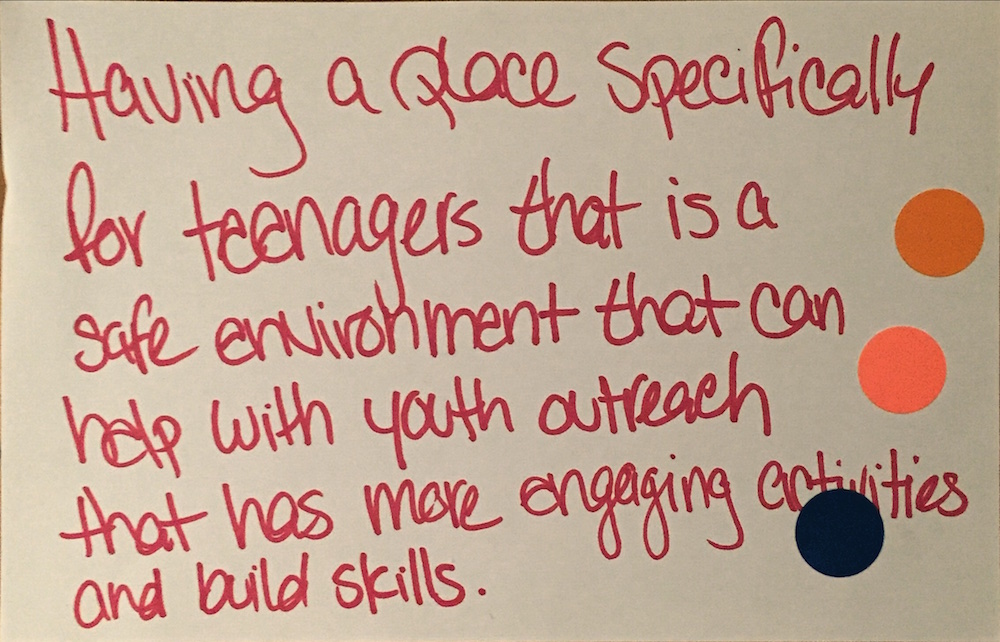 Having a place specifically
for teenagers that is a
safe environment that can
help with youth outreach
that has more engaging activities
and build skills.